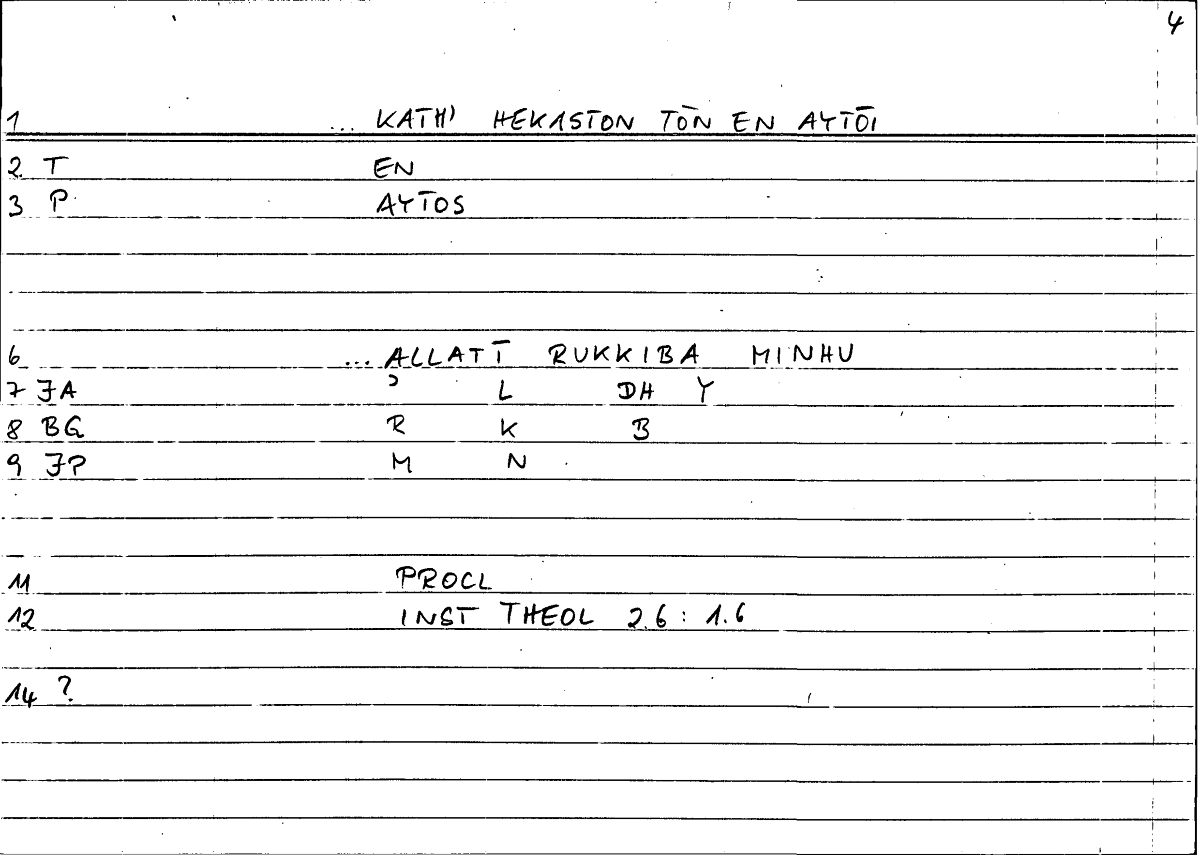 4
1 ... KATH' HEKASTON TŌN EN AYTŌI
2 T EN
3 P AYTOS
6 ... ALLATĪ RUKKIBA MINHU
7 JA ʾ L DH Y
8 BG R K B
9 JP M N
11 PROCL
12 INST THEOL 2.6 : 1.6
14 ?